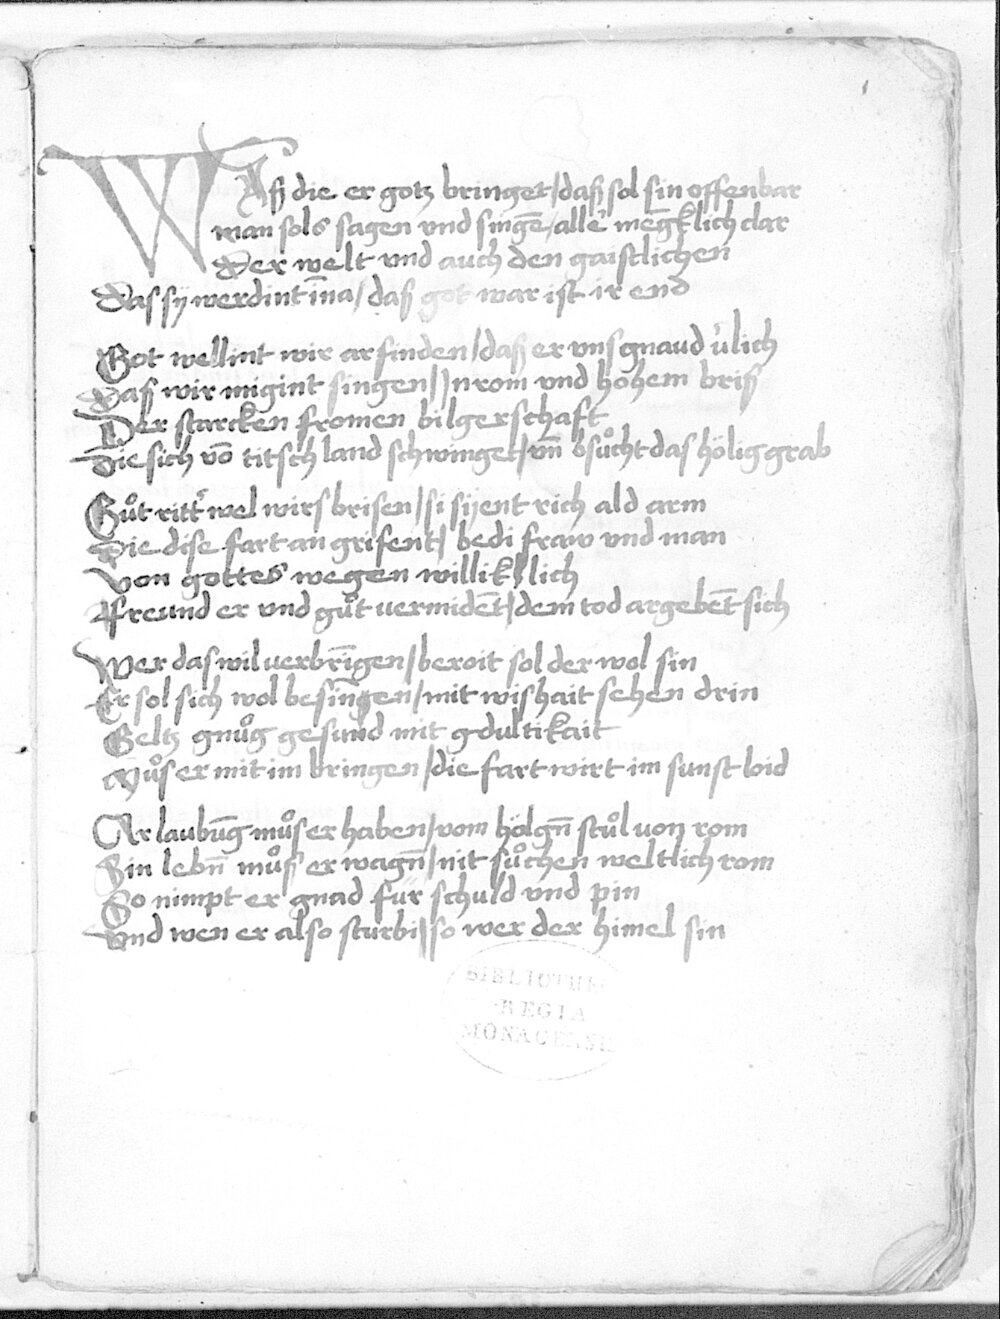 WAß die er gotz bringet / daß sol sin offenbar
man sols sagen vnd singē / alle megklich clar
Der welt vnd auch den gaistlichen
Das sy werdint īna / daß got war ist ir end
Got wellint wir arfinden / daß er vns gnaud v̇lich
Daß wir migint singen / Jn rom vnd hohem briß
Der starcken fromen bilgerschaft
Die sich vō titsch land schwinget / vn̄ bsuͦcht das hölig grab
Guͦt ritt' wel wirs brisen / si sijent rich ald arm
Die dise fart an grifent / bedi fraw vnd man
Von gottes wegen williklich
Freund er vnd guͦt uermidēt / dem tod argebēt sich
Wer das wil uerbrīgen / beroit sol der wol sin
Er sol sich wol besiñgen / mit wishait sehen drin
Geltz gnuͦg gesund mit gdultikait
Muͦs er mit im bringen / die fart wirt im sunst loid
Arlaubūg muͦs er haben / vom hölgn̄ stuͦl von rom
Sin lebn̄ muͦß er wagn̄ / nit suͦchen weltlich rom
So nimpt er gnad für schuld vnd pin
Vnd wen er also sturbi / so wer der himel sin
BIBLIOTHE
REGIA
MONACENSIS